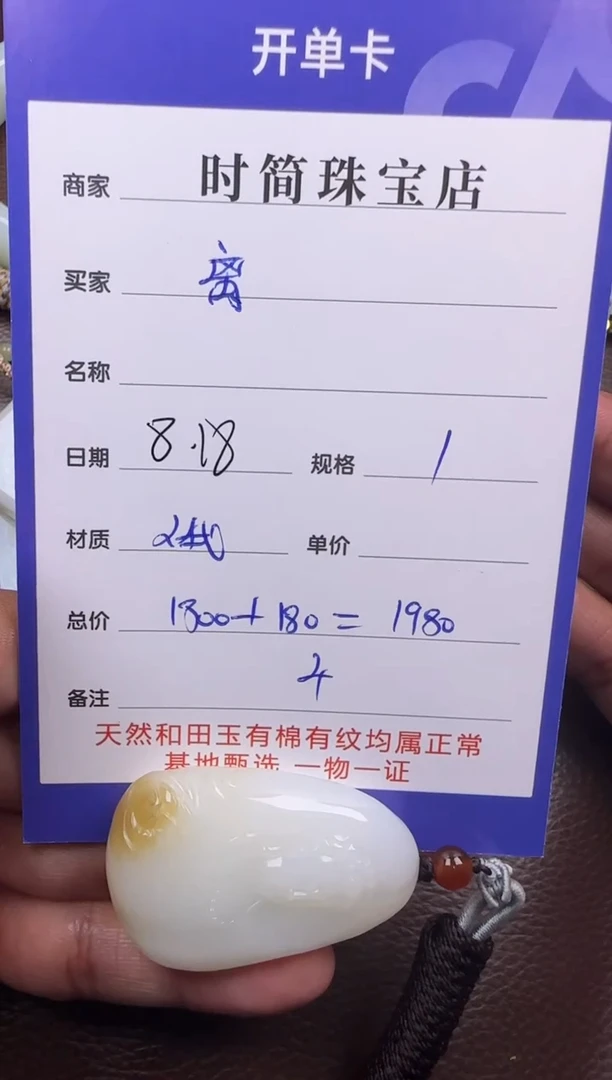 开单卡
商家 时简珠宝店
买家 离
名称
日期 8.18 规格 1
材质 单价
总价 1800+180=1980
备注
天然和田玉有棉有纹均属正常
基地甄选 一物一证